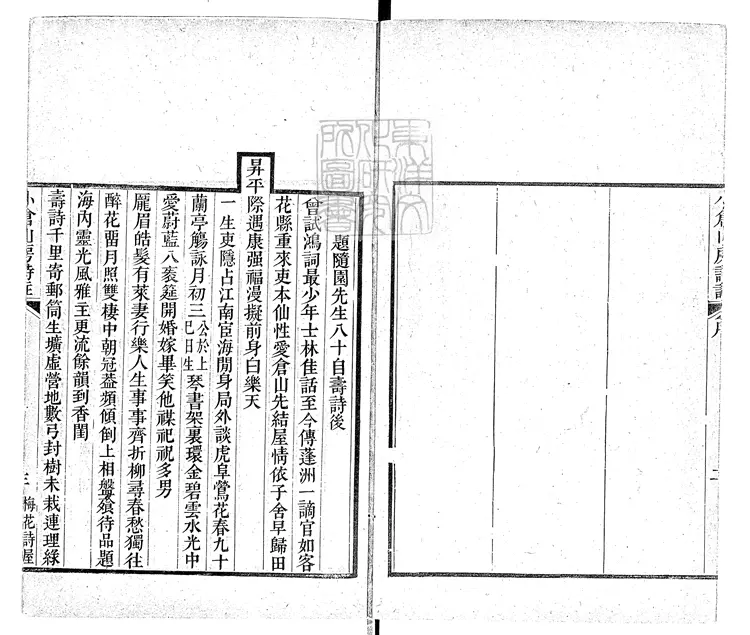 題隨園先生八十自壽詩後
曾試鴻詞最少年士林佳話至今傳蓬洲一謫官如客
花縣重來吏本仙性愛倉山先結屋情依子舍早歸田
昇平際遇康强福漫擬前身白樂天
一生吏隱占江南宦海閒身局外談虎阜鶯花春九十
蘭亭觴詠月初三公於上巳日生琴書架裏環金碧雲水光中
愛蔚藍八袠筵開婚嫁畢笑他禖祀祝多男
厖眉皓髮有萊妻行樂人生事事齊折柳尋春愁獨往
醉花畱月照雙棲中朝冠葢頻傾倒上相盤餐待品題
海內靈光風雅主更流餘韻到香閨
壽詩千里寄郵筒生壙虛營地數弓封樹未栽連理綠
小倉山房詩註
三
梅花詩屋